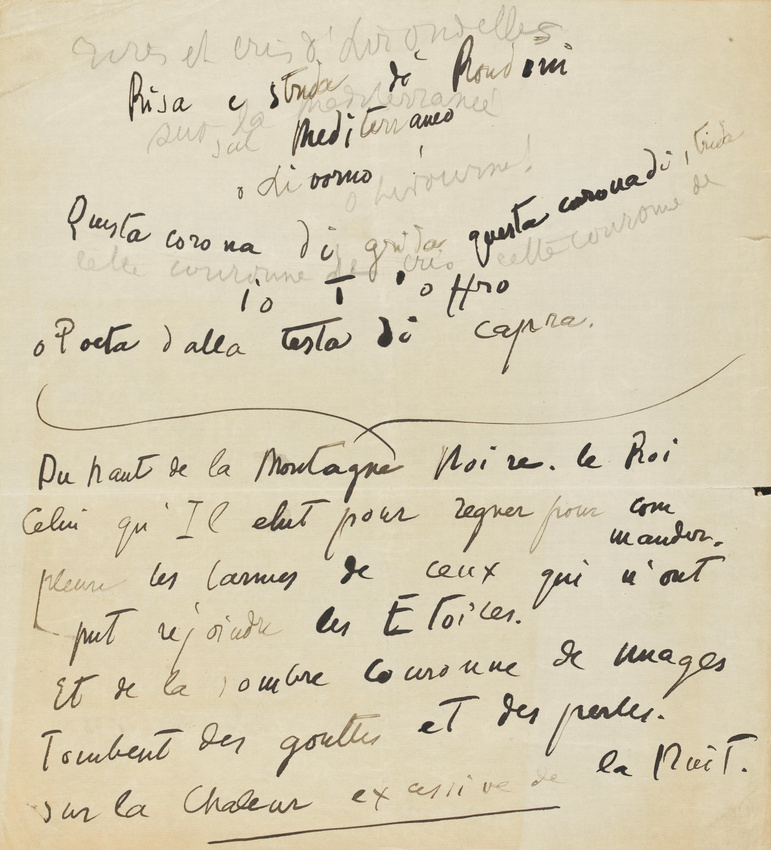 Rires et cris d'hirondelles
Risa e strida di Rondini
sur la méditerranée
sul Mediterraneo
o Livorno !
o Livourne!
Questa corona di grida questa corona di strida
cette couronne de cris cette couronne de
io T'offro
o Poeta dalla testa di capra.
Du haut de la Montagne Noire. le Roi
Celui qu'Il elut pour regner pour com
mander.
pleure les larmes de ceux qui n'ont
put rejoindre les Etoiles.
Et de la sombre Couronne de nuages
Tombent des gouttes et des perles.
sur la Chaleur excessive de la Nuit.